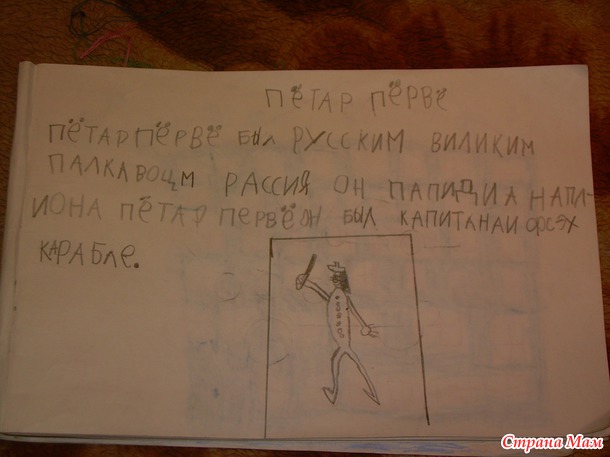 ПЁТАР ПЁРВЁ
ПЁТАР ПЁРВЁ БЫЛ РУССКИМ ВИЛИКИМ
ПАЛКАВОЦМ РАССИЯ ОН ПАПИДИА НАПИ-
ИОНА ПЁТАР ПЕРВЁ ОН БЫЛ КАПИТАНАИ ФСЭХ
КАРАБЛЕ.
Страна Мам